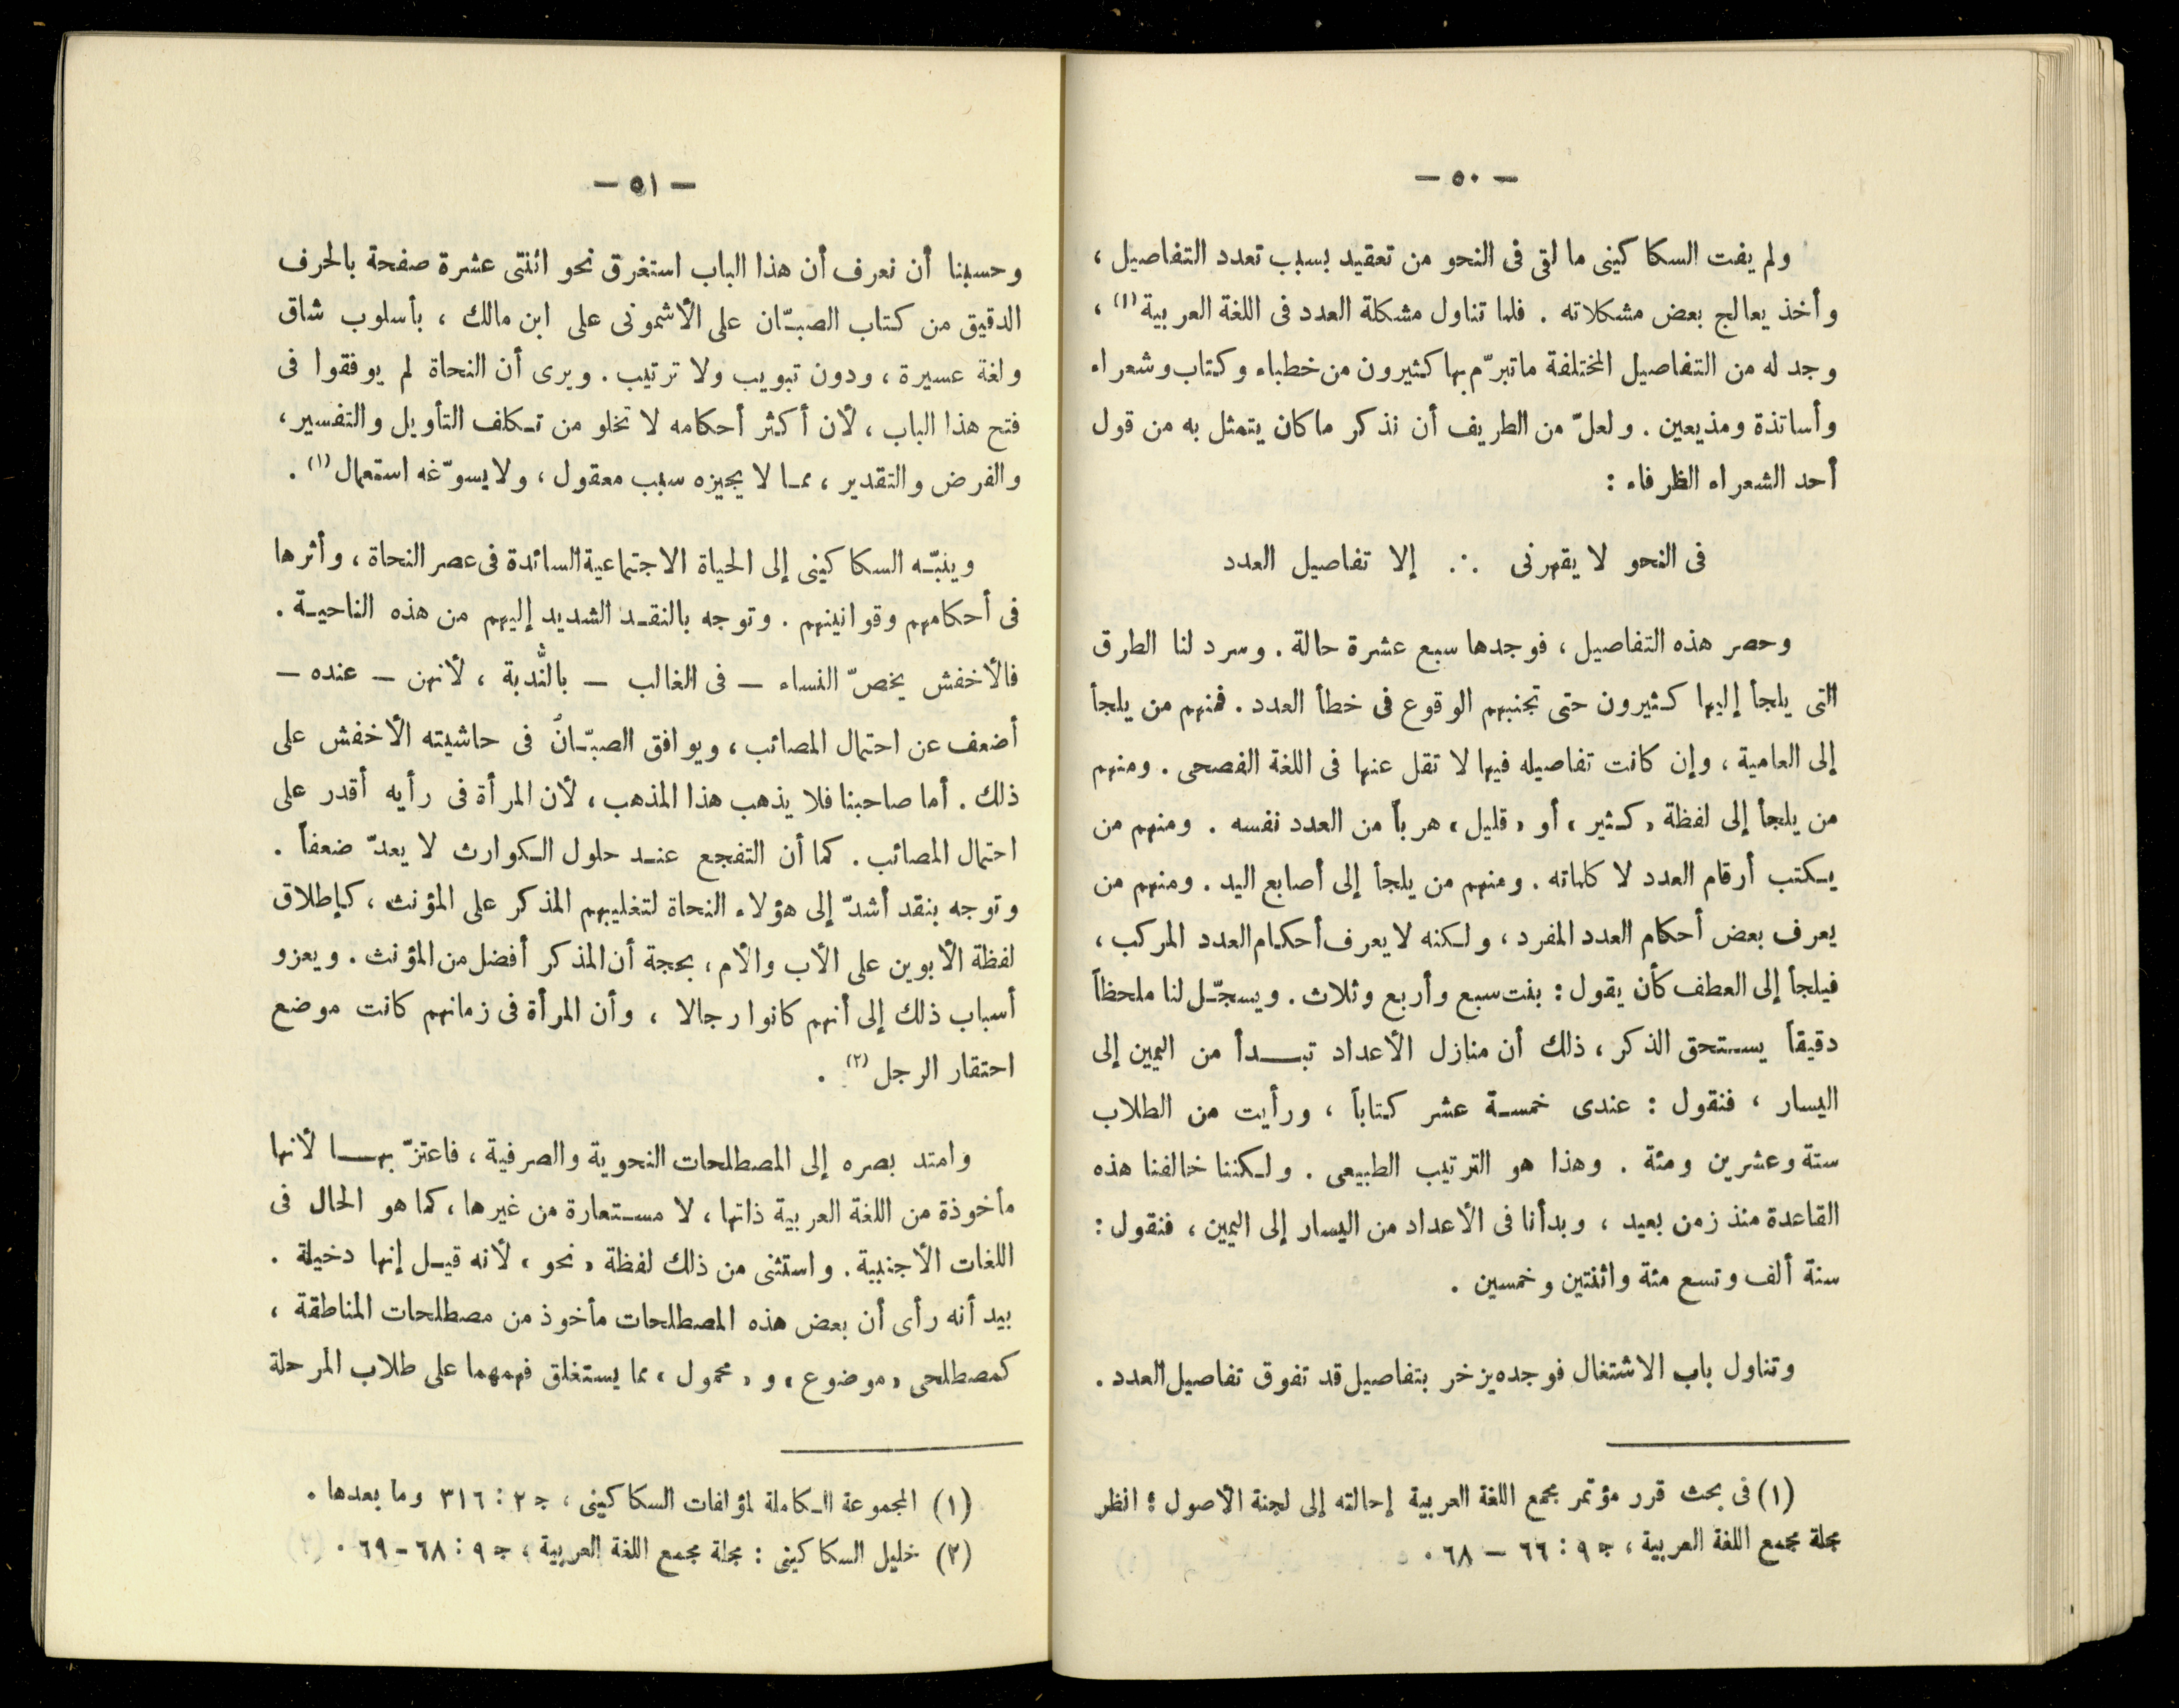 — ٥٠ —
ولم يفت السكاكينى ما لقى فى النحو من تعقيد بسبب تعدد التفاصيل ،
وأخذ يعالج بعض مشكلاته . فلما تناول مشكلة العدد فى اللغة العربية (١) ،
وجد له من التفاصيل المختلفة ما تبرّم بها كثيرون من خطباء وكتاب وشعراء
وأساتذة ومذيعين . ولعلّ من الطريف أن نذكر ما كان يتمثل به من قول
أحد الشعراء الظرفاء :
فى النحو لا يقهرنى ∴ إلا تفاصيل العدد
وحصر هذه التفاصيل ، فوجدها سبع عشرة حالة . وسرد لنا الطرق
التى يلجأ إليها كثيرون حتى تجنبهم الوقوع فى خطأ العدد . فمنهم من يلجأ
إلى العامية ، وإن كانت تفاصيله فيها لا تقل عنها فى اللغة الفصحى . ومنهم
من يلجأ إلى لفظة « كثير » أو « قليل » هرباً من العدد نفسه . ومنهم من
يكتب أرقام العدد لا كلماته . ومنهم من يلجأ إلى أصابع اليد . ومنهم من
يعرف بعض أحكام العدد المفرد ، ولكنه لا يعرف أحكام العدد المركب ،
فيلجأ إلى العطف كأن يقول : بنت سبع وأربع وثلاث . ويسجّل لنا ملحظاً
دقيقاً يستحق الذكر ، ذلك أن منازل الأعداد تبدأ من اليمين إلى
اليسار ، فنقول : عندى خمسة عشر كتاباً ، ورأيت من الطلاب
ستة وعشرين ومئة . وهذا هو الترتيب الطبيعى . ولكننا خالفنا هذه
القاعدة منذ زمن بعيد ، وبدأنا فى الأعداد من اليسار إلى اليمين ، فنقول :
سنة ألف وتسع مئة واثنتين وخمسين .
وتناول باب الاشتغال فوجده يزخر بتفاصيل قد تفوق تفاصيل العدد .
(١) فى بحث قرر مؤتمر مجمع اللغة العربية إحالته إلى لجنة الأصول ؛ انظر
مجلة مجمع اللغة العربية ، جـ ٩ : ٦٦ — ٦٨ .
— ٥١ —
وحسبنا أن نعرف أن هذا الباب استغرق نحو اثنتى عشرة صفحة بالحرف
الدقيق من كتاب الصبّان على الأشمونى على ابن مالك ، بأسلوب شاق
ولغة عسيرة ، ودون تبويب ولا ترتيب . ويرى أن النحاة لم يوفقوا فى
فتح هذا الباب ، لأن أكثر أحكامه لا تخلو من تكلف التأويل والتفسير ،
والفرض والتقدير ، مما لا يجيزه سبب معقول ، ولا يسوّغه استعمال (١) .
وينبّه السكاكينى إلى الحياة الاجتماعية السائدة فى عصر النحاة ، وأثرها
فى أحكامهم وقوانينهم . وتوجه بالنقد الشديد إليهم من هذه الناحية .
فالأخفش يخصّ النساء — فى الغالب — بالنُّدبة ، لأنهن — عنده —
أضعف عن احتمال المصائب ، ويوافق الصبّانُ فى حاشيته الأخفش على
ذلك . أما صاحبنا فلا يذهب هذا المذهب ، لأن المرأة فى رأيه أقدر على
احتمال المصائب . كما أن التفجع عند حلول الكوارث لا يعدّ ضعفاً .
وتوجه بنقد أشدّ إلى هؤلاء النحاة لتغليبهم المذكر على المؤنث ، كإطلاق
لفظة الأبوين على الأب والأم ، بحجة أن المذكر أفضل من المؤنث . ويعزو
أسباب ذلك إلى أنهم كانوا رجالا ، وأن المرأة فى زمانهم كانت موضع
احتقار الرجل (٢) .
وامتد بصره إلى المصطلحات النحوية والصرفية ، فاعتزّ بها لأنها
مأخوذة من اللغة العربية ذاتها ، لا مستعارة من غيرها ، كما هو الحال فى
اللغات الأجنبية . واستثنى من ذلك لفظة « نحو » لأنه قيل إنها دخيلة .
بيد أنه رأى أن بعض هذه المصطلحات مأخوذ من مصطلحات المناطقة ،
كمصطلحى « موضوع » و « محمول » مما يستغلق فهمهما على طلاب المرحلة
(١) المجموعة الكاملة لمؤلفات السكاكينى ، جـ ٢ : ٣١٦ وما بعدها .
(٢) خليل السكاكينى : مجلة مجمع اللغة العربية ، جـ ٩ : ٦٨ - ٦٩ .